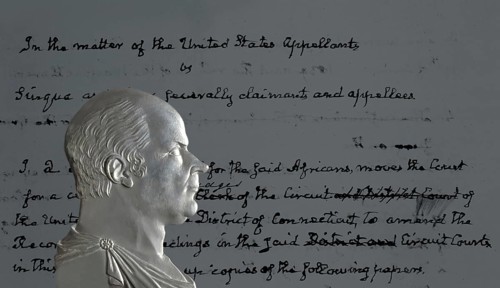 In the matter of the United States Appellants
vs
Sinqua a severally claimants and appellees
I. a for the said Africans, moves the Court
for a Clerk of the Circuit and District Court of
the Unite District of Connecticut, to amend the
Reco edings in the said District and Circuit Courts
in this up copies of the following papers.